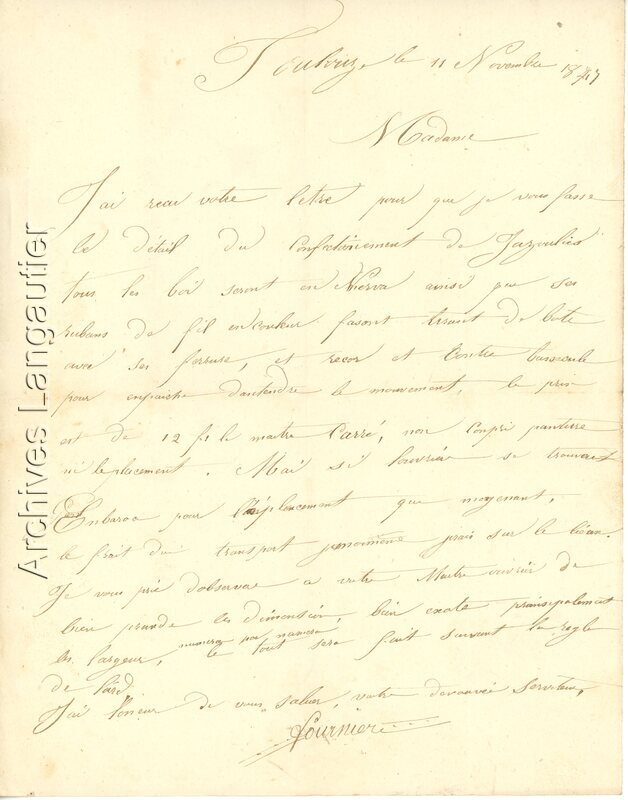 Toulouze le 11 Novembre 1847
Madame
J'ai recu votre letre pour que je vous fasse
le détail du confectionement de Jazoulies
tous les boi seront en Nierva ainsi que ses
rubans de fil en couleur fasont tirant de bote
avec ses ferrure, et recor et contre bassecule
pour enpaiche dantendre le mouvement, le prix
est de 12 f. le maitre Carré, non conpri pinture
ni le placement. Mai si louvrier se trouveret
Enbaroa pour léplacement que moyenant,
le frait du transport jemoiméme prais sur le lieau.
Je vous prie d'observer a votre Maitre ouvrier de
bien prandre les dimension, bien exate prainsipalement
les largeur, numeros par numero le tout sera fait suivant la regle
de lard
J'ai l'oneur de vous saluer, votre devouvé serviteur,
Fournier
Archives Langautier